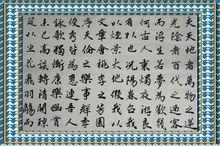 夫天地者萬物之逆旅
光陰者百代之過客
而浮生若夢為歡幾
何古人秉燭夜遊良
有以也況陽春召我
以煙景大塊假我以文章
會桃花之芳園序
天倫之樂事群
季俊秀皆為惠連吾人
詠歌獨慚康樂幽賞
未已高談轉清開瓊
筵以坐花飛羽觴而